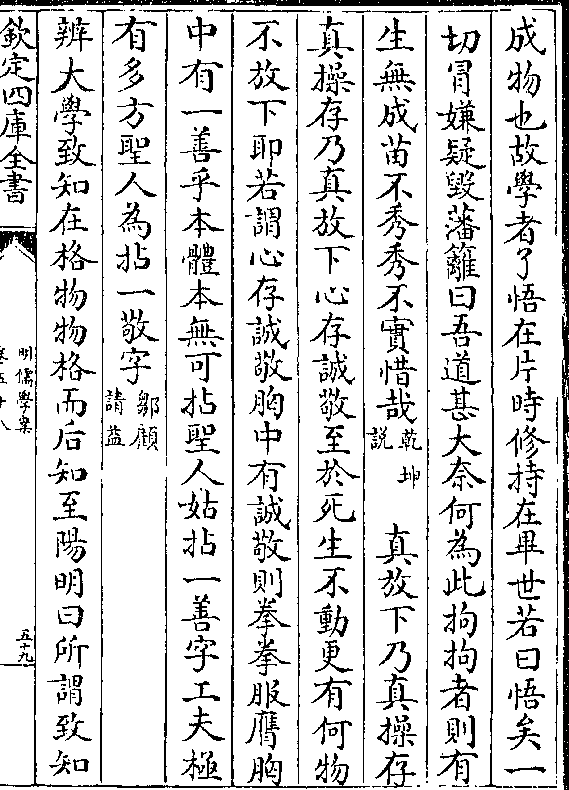 成物也故學者了悟在片時修持在畢世若曰悟矣一
切冐嫌疑毀藩籬曰吾道甚大奈何為此拘拘者則有
生無成苗不秀秀不實惜哉乾坤說　真放下乃真操存
真操存乃真放下心存誠敬至於死生不動更有何物
不放下耶若謂心存誠敬胸中有誠敬則拳拳服膺胸
中有一善乎本體本無可拈聖人姑拈一善字工夫極
有多方聖人為拈一敬字鄒顧請益
辨大學致知在格物物格而后知至陽明曰所謂致知
欽定四庫全書
明儒學案
卷五十八
五十九